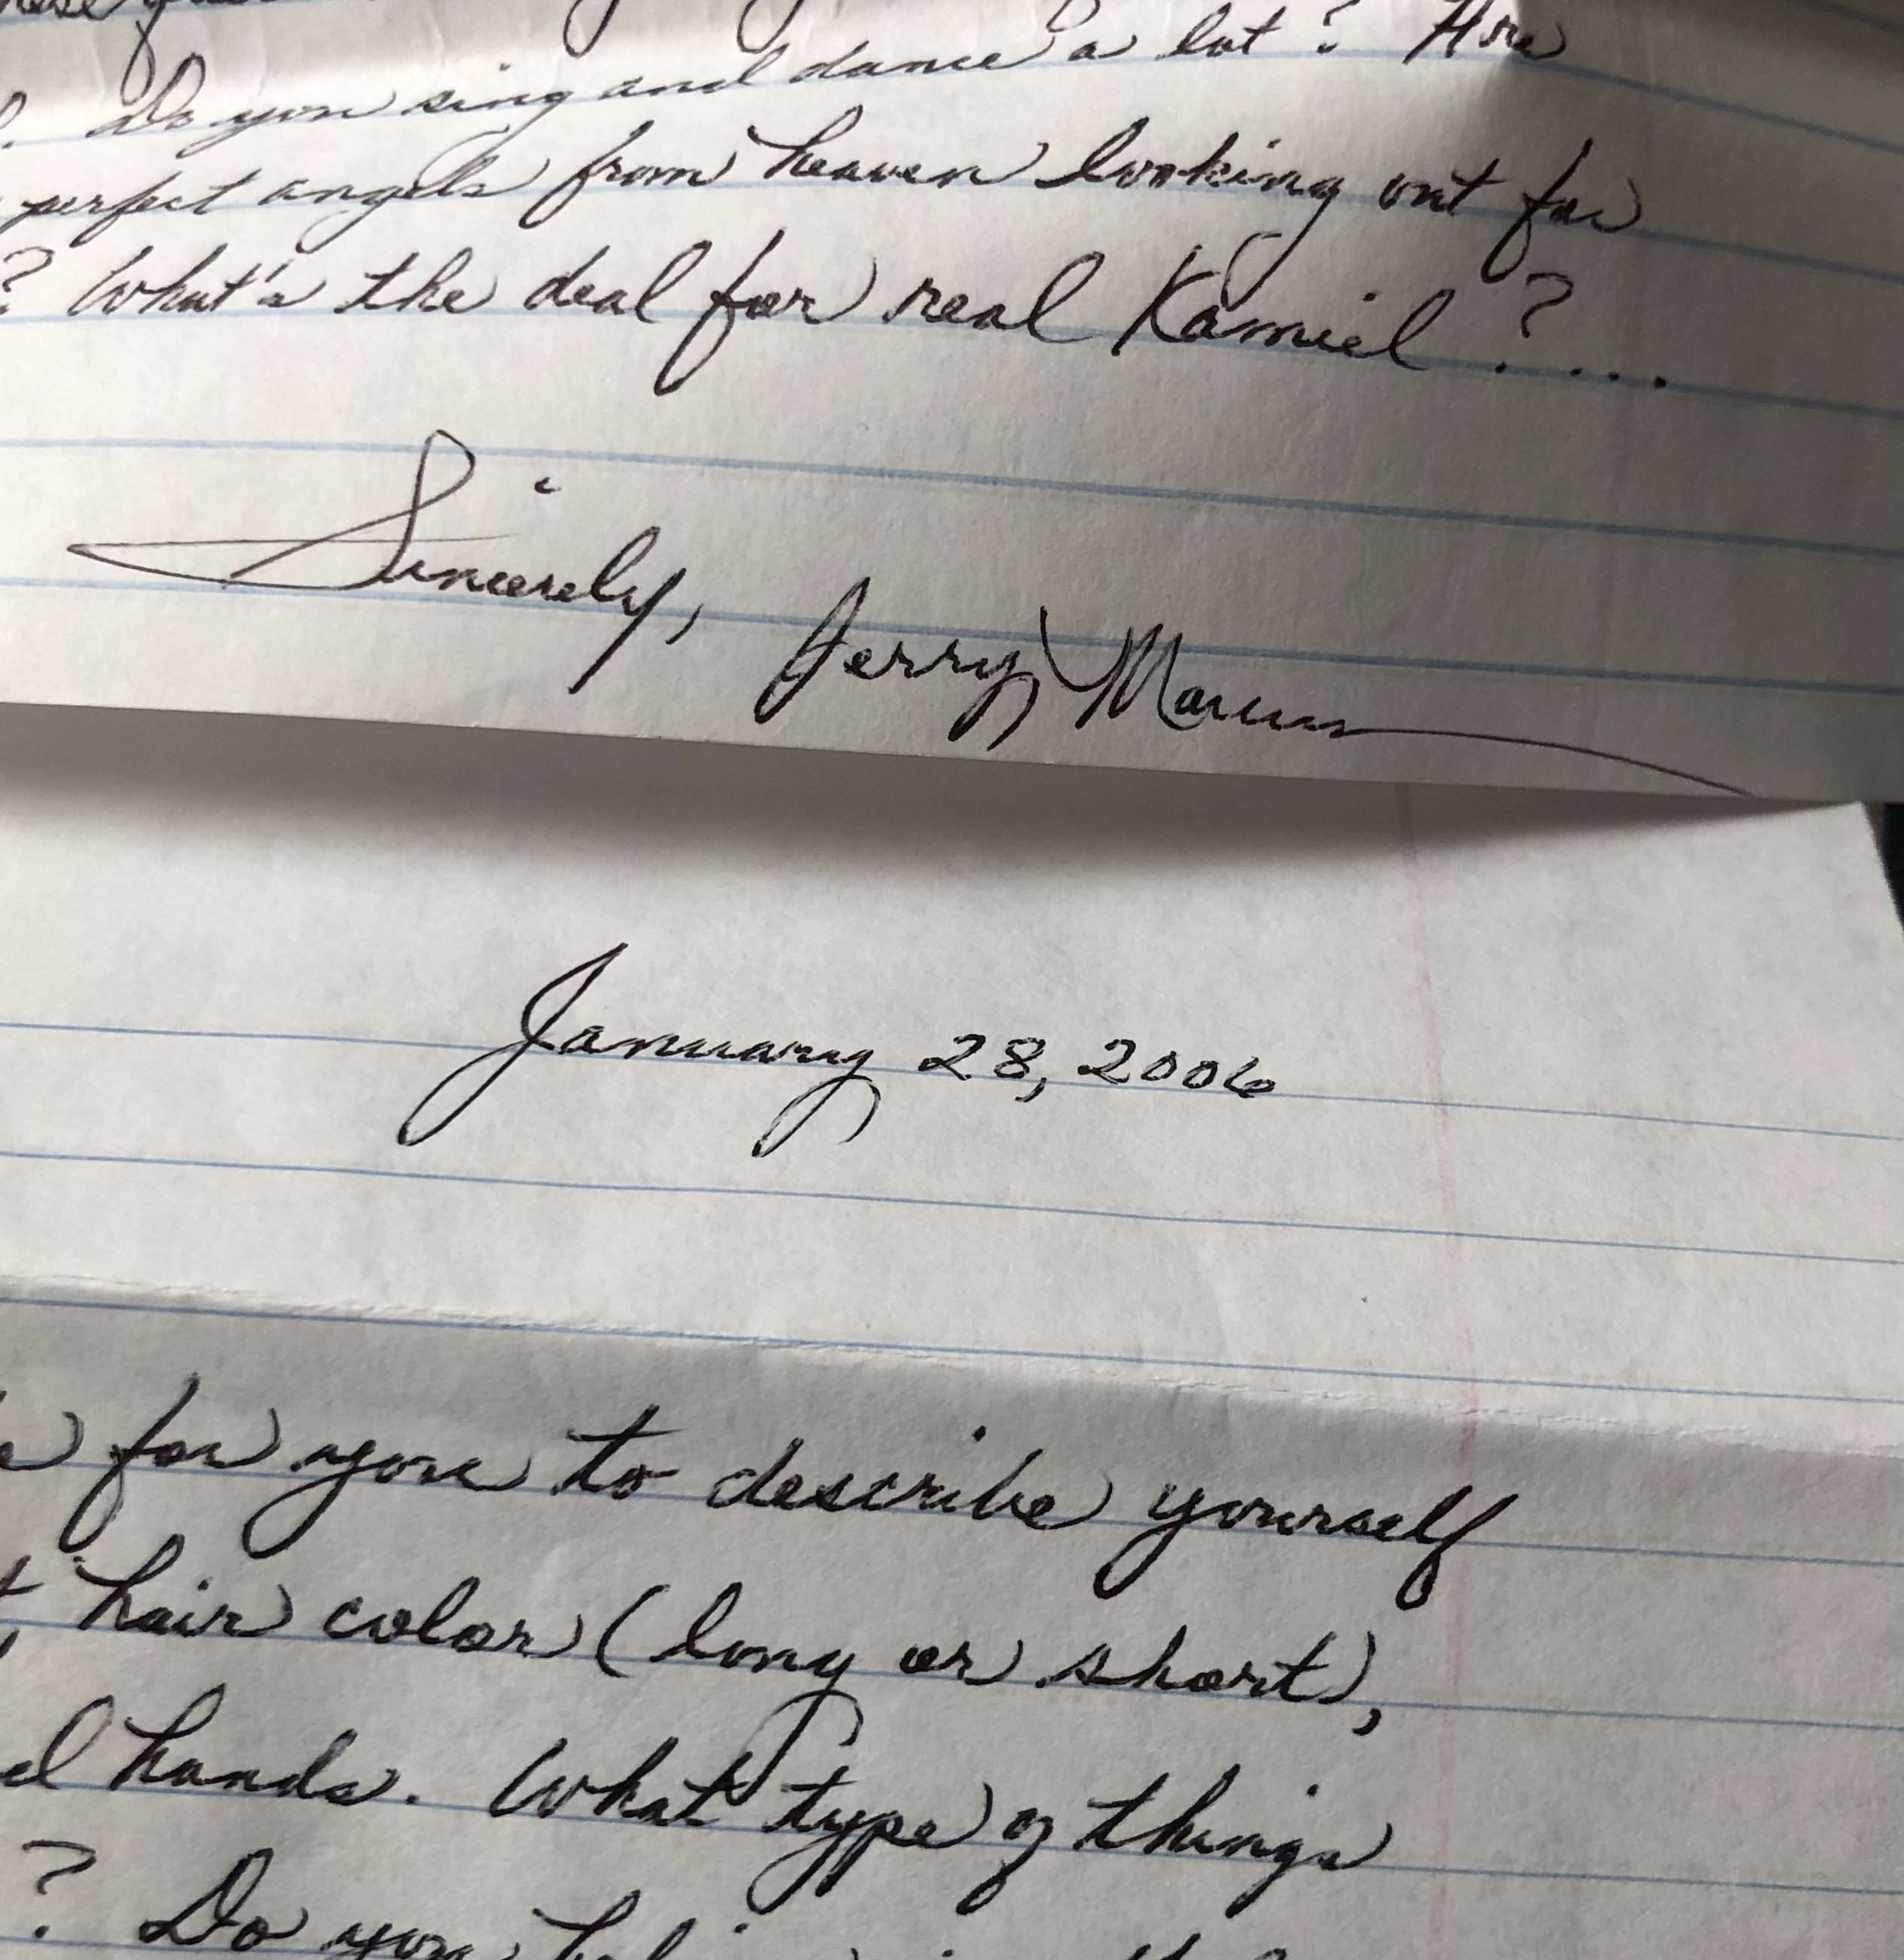 Do you sing and dance a lot? Are
perfect angels from heaven looking out for
? What's the deal for real Kamiel?....
Sincerely, Jerry Marcus
January 28, 2006
for you to describe yourself
, hair color (long or short),
hands. What type of things
? Do you